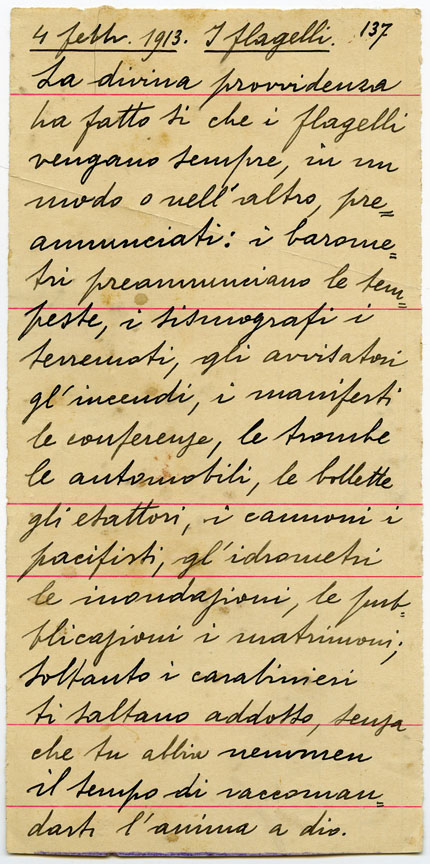 4 febbr. 1913. I flagelli. 137
La divina provvidenza
ha fatto sì che i flagelli
vengano sempre, in un
modo o nell'altro, pre=
annunciati: i barome=
tri preannunciano le tem=
peste, i sismografi i
terremoti, gli avvisatori
gl'incendi, i manifesti
le conferenze, le trombe
le automobili, le bollette
gli esattori, i cannoni i
pacifisti, gl'idrometri
le inondazioni, le pub=
blicazioni i matrimoni;
soltanto i carabinieri
ti saltano addosso, senza
che tu abbia nemmen
il tempo di raccoman=
darti l'anima a dio.